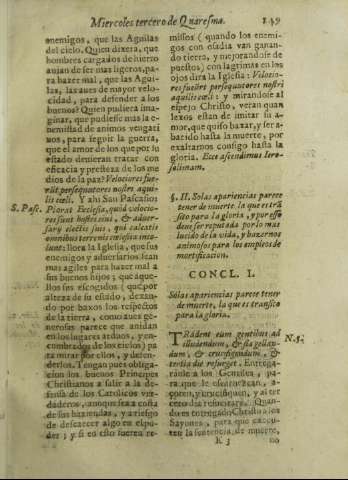 Miercoles tercero de Quaresma. 149
enemigos, que las Aguilas
del cielo. Quien dixera, que
hombres cargados de hierro
auian de ser mas ligeros, pa-
ra hazer mal, que las Agui-
las, las aues de mayor velo-
cidad, para defender a los
buenos? Quien pudiera ima-
ginar, que pudiesse mas la e-
nemistad de animos vengati
uos, para seguir la guerra,
que el amor de los que por su
estado deuieran tratar con
eficacia y presteza de los me
dios de la paz? Velociores fue-
rūt persequutores nostri aqui-
lis cœli. Y ahi San Pascasio:
S. Pasc.
Plorat Ecclesia, quod velocio-
res sunt hostes eius, & aduer-
sarij electis suis, qui calcatis
omnibus terrenis cælestia ince-
dunt: llora la Iglesia, que sus
enemigos y aduersarios sean
mas agiles para hazer mal a
sus buenos hijos; que aque-
llos sus escogidos (que por
alteza de su estado, dexan-
do por baxos los respectos
de la tierra, como aues ge-
nerosas parece que anidan
en los lugares arduos, y en-
combrados de los cielos) pa
ra mirar por ellos, y defen-
derlos. Tengan pues obliga-
cion los buenos Principes
Christianos a salir a la de-
fensa de los Catolicos ver-
daderos, aunque sea a costa
de sus haziendas, y a riesgo
de descaecer algo en el po-
der; y si en esto fueren re-
missos (quando los enemi-
gos con osadia van ganan-
do tierra, y mejorandose de
puestos) con lagrimas en los
ojos dira la Iglesia: Velocio-
res fuerūt persequutores nostri
aquilis cœli: y mirandose al
espejo Christo, veran quan
lexos estan de imitar su a-
mor, que quiso baxar, y ser a-
batido hasta la muerte, por
exaltarnos consigo hasta la
gloria. Ecce ascendimus Iero-
solimam.
§. II. Solas apariencias parece
tener de muerte la que es trā
sito para la gloria, y por esso
deue ser reputada por lo mas
lucido de la vida, y hazernos
animosos para los empleos de
mortificacion.
CONCL. I.
Solas apariencias parece tener
de muerte, la que es transito
para la gloria.
TRadent eum gentibus ad
illudendum, & flagellan
dum, & crucifigendum, &
N. 5.
tertia die resurget. Entrega-
ranle a los Gentiles, pa-
ra que le escarnezcan, a-
çoten, y crucifiquen, y al ter
cero dia resucitara. Quan-
do es entregado Christo a los
Sayones, para que execu-
ten la sentencia de muerte,
K 3 no